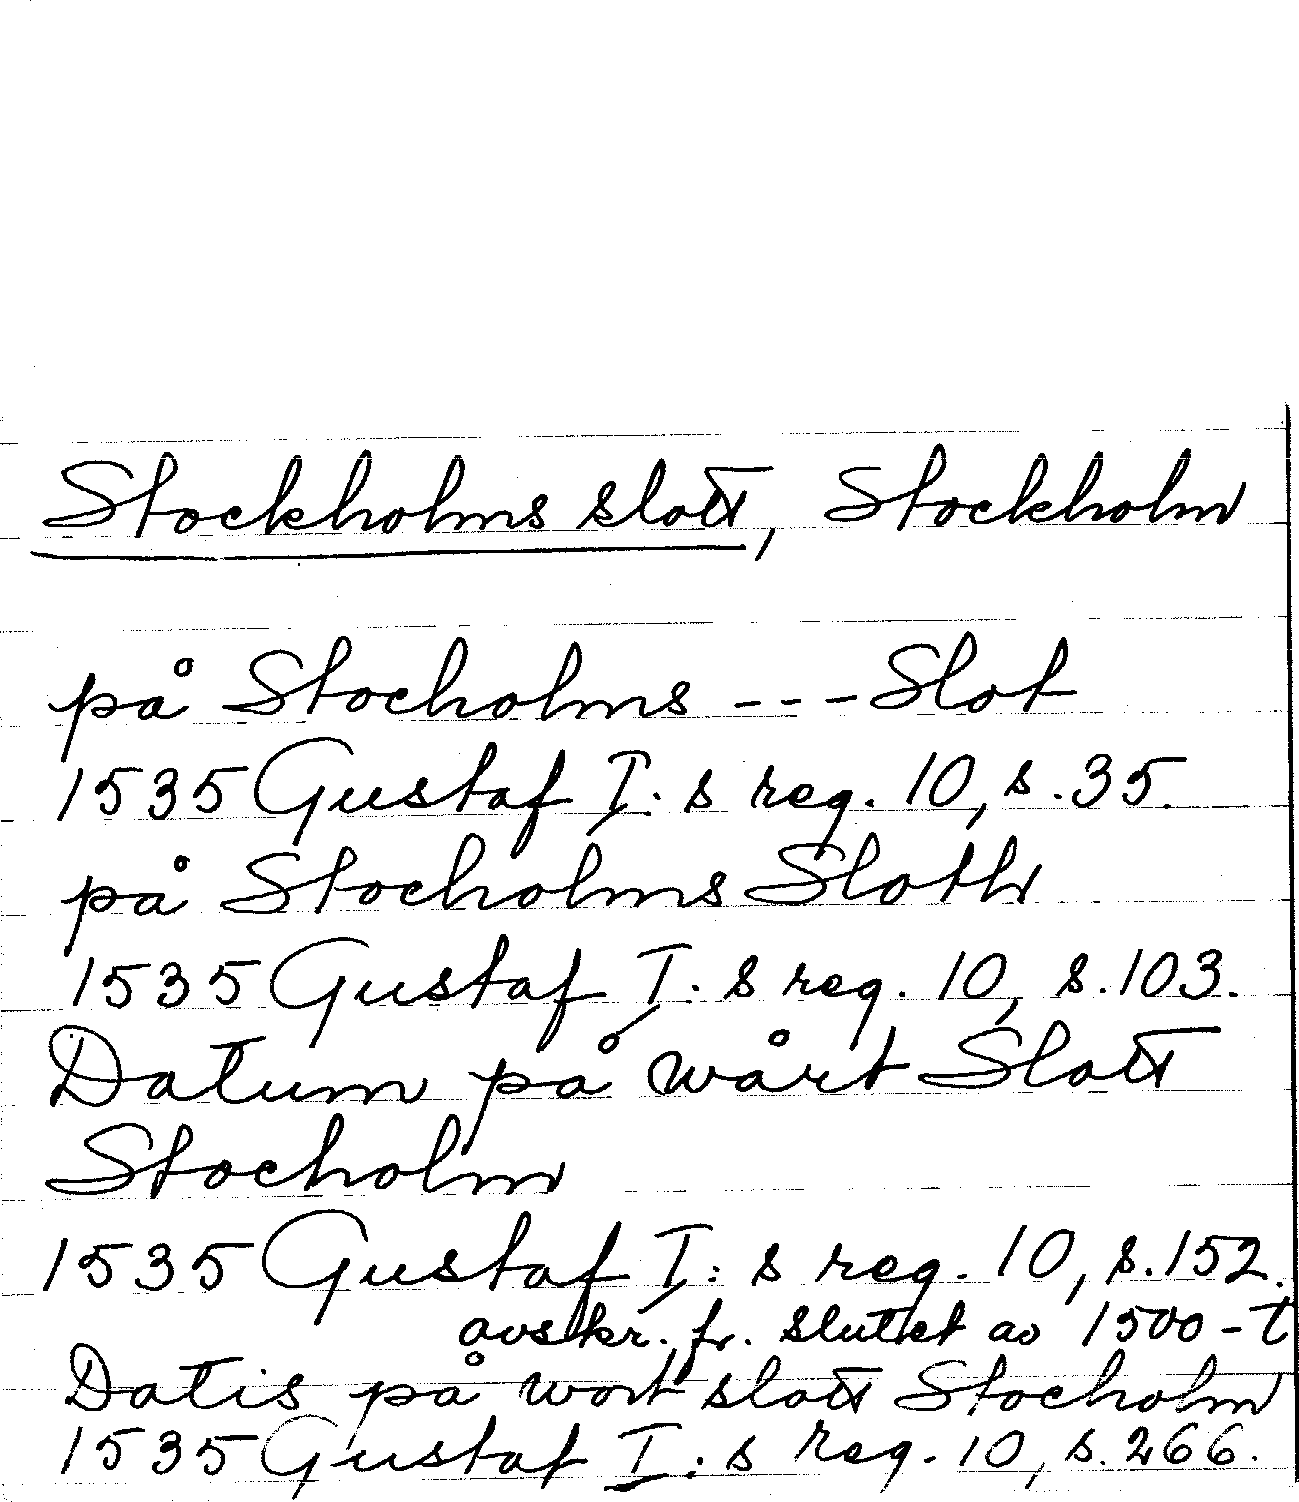 Stockholms slott, Stockholm
på Stocholms --- Slot
1535 Gustaf I:s reg. 10, s.35.
på Stocholms Sloth
1535 Gustaf I:s reg. 10, s.103.
Datum på wårt Slott
Stocholm
1535 Gustaf I:s reg. 10, s.152.
avskr. fr. slutet av 1500-t
Datis på wort slott Stocholm
1535 Gustaf I:s reg. 10, s.266.